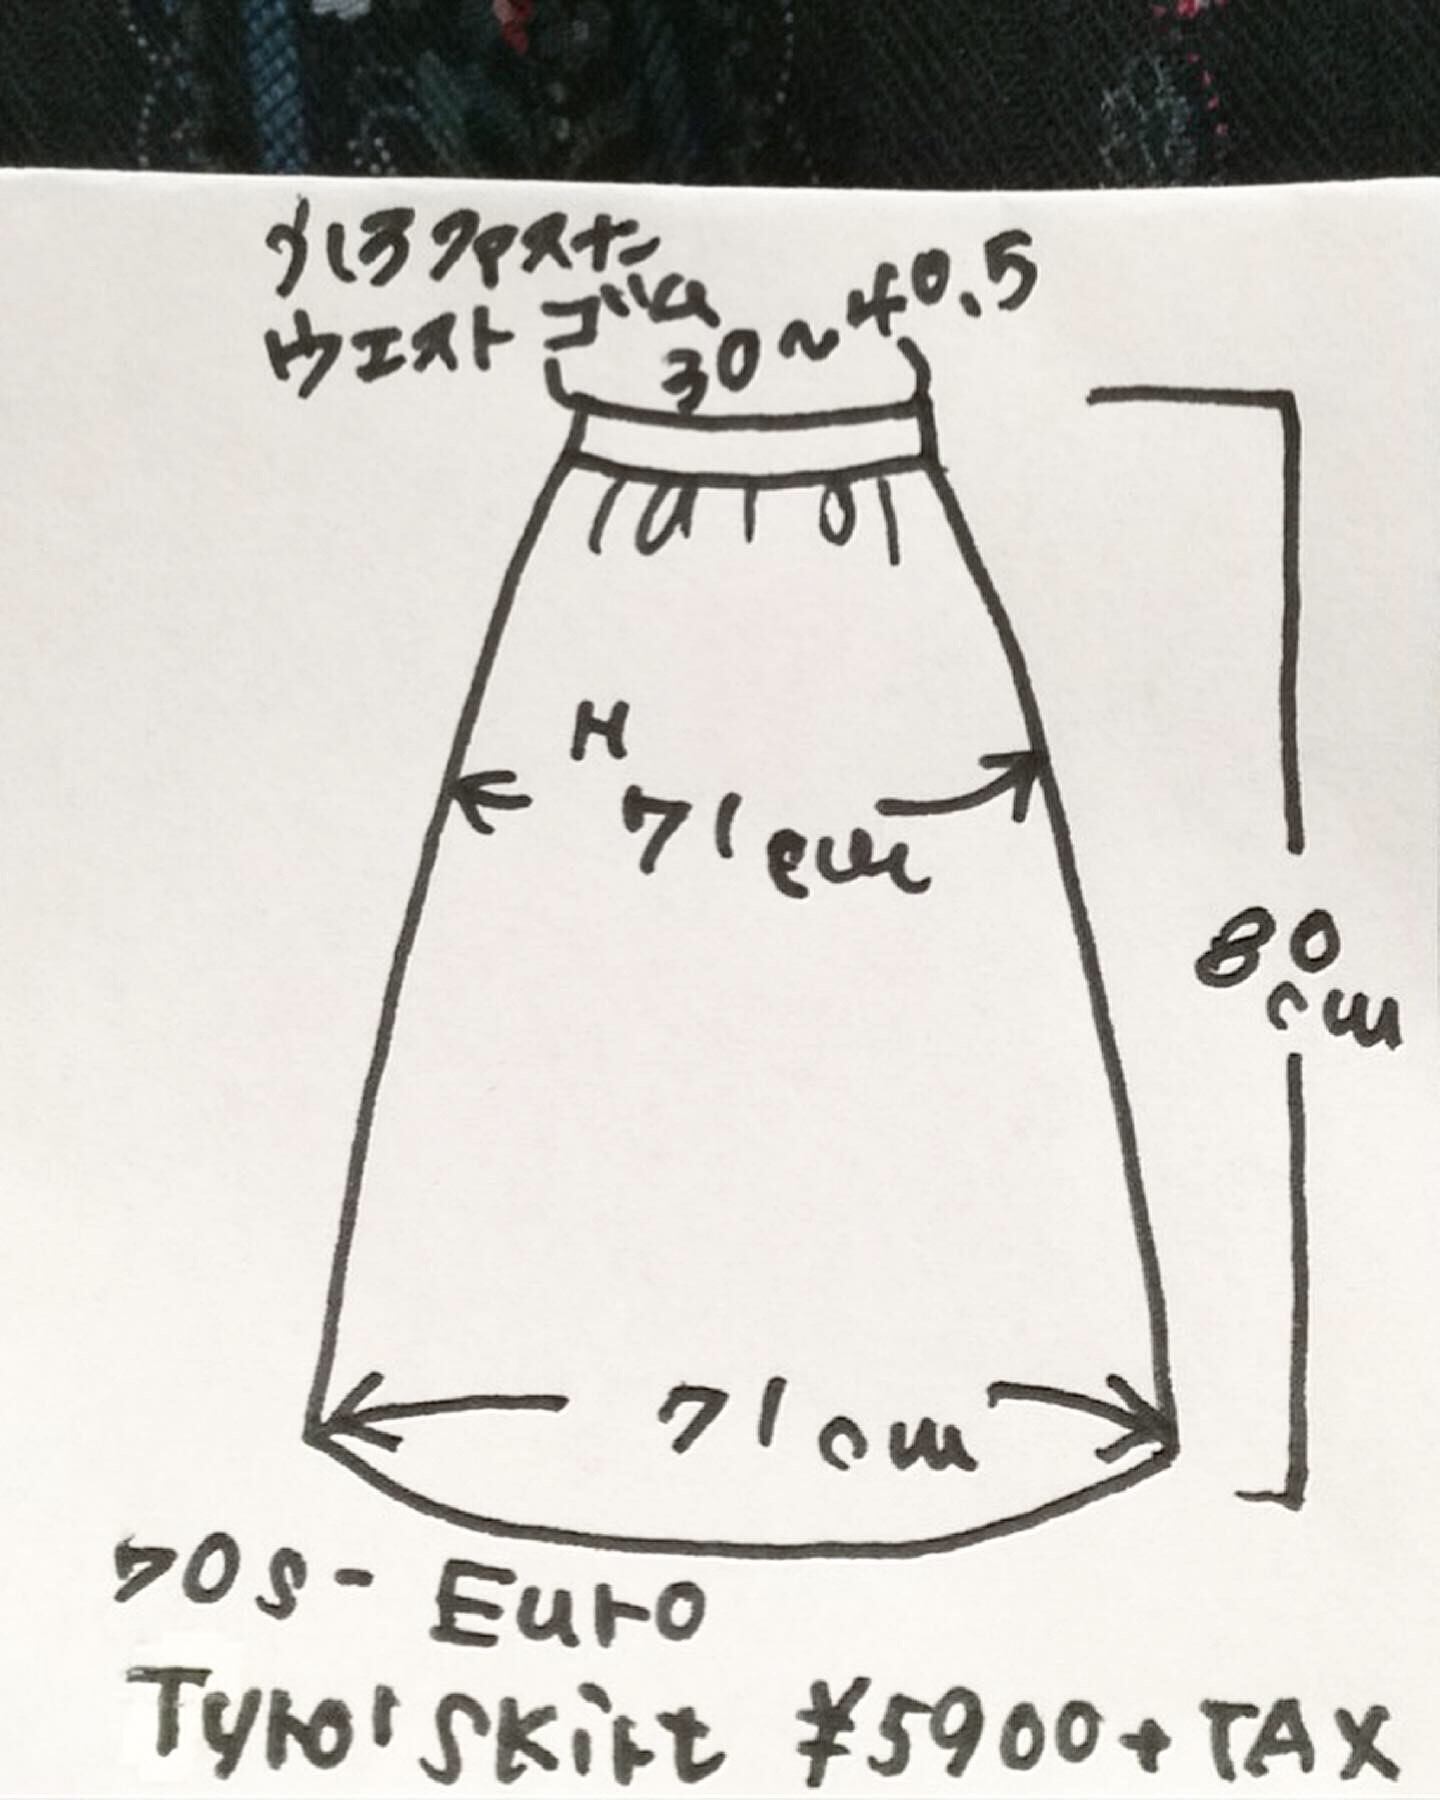 うしろファスナー
ウエスト ゴム
30~40.5
H
71cm
80
cm
71cm
70s- Euro
Tyrol Skirt ¥5900+TAX